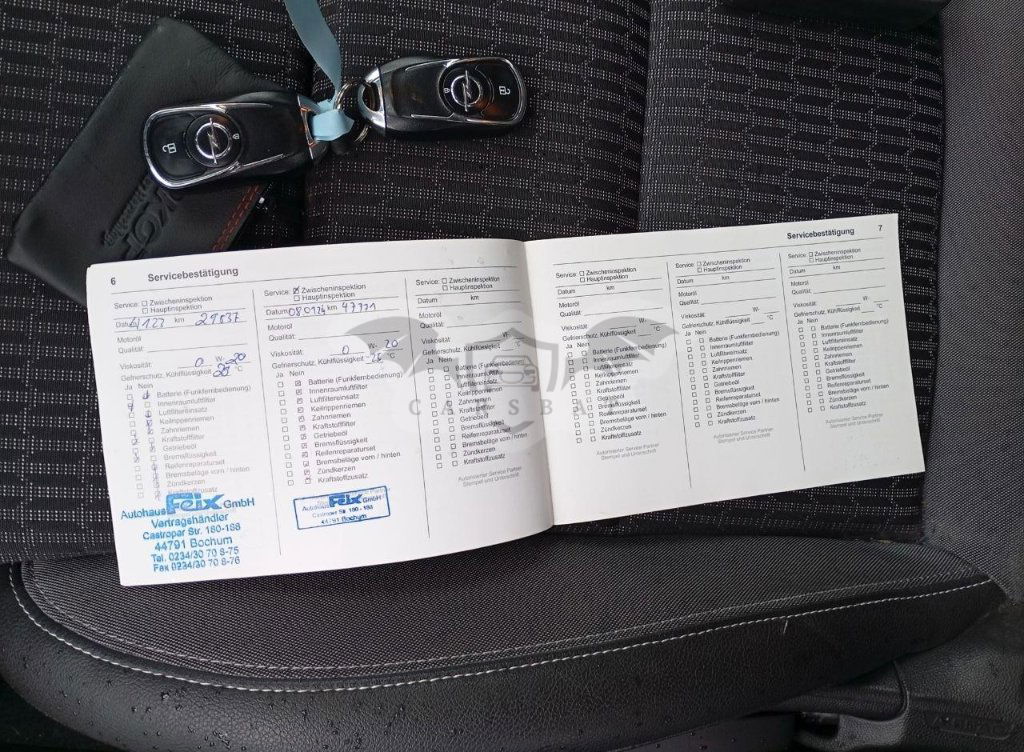 6 Servicebestätigung
Service: Zwischeninspektion
Hauptinspektion
Datum km 29037
Motoröl
Qualität:
Viskosität: 0 W- 20
Gefrierschutz, Kühlflüssigkeit °C
Ja Nein
Batterie (Funkfernbedienung)
Innenraumluftfilter
Luftfiltereinsatz
Keilrippenriemen
Zahnriemen
Kraftstofffilter
Getriebeöl
Bremsflüssigkeit
Reifenreparaturset
Bremsbeläge vorn / hinten
Zündkerzen
Kraftstoffzusatz
Autohaus Feix GmbH
Vertragshändler
Castroper Str. 180-188
44791 Bochum
Tel. 0234/30 70 8-75
Fax 0234/30 70 8-76
Service: Zwischeninspektion
Hauptinspektion
Datum km
Motoröl
Qualität:
Viskosität: 0 W- 20
Gefrierschutz, Kühlflüssigkeit °C
Ja Nein
Batterie (Funkfernbedienung)
Innenraumluftfilter
Luftfiltereinsatz
Keilrippenriemen
Zahnriemen
Kraftstofffilter
Getriebeöl
Bremsflüssigkeit
Reifenreparaturset
Bremsbeläge vorn / hinten
Zündkerzen
Kraftstoffzusatz
Autohaus Feix GmbH
Castroper Str. 180 - 188
44791 Bochum
Service: Zwischeninspektion
Hauptinspektion
Datum km
Motoröl
Qualität:
Viskosität: W-
Gefrierschutz, Kühlflüssigkeit °C
Ja Nein
Batterie (Funkfernbedienung)
Innenraumluftfilter
Luftfiltereinsatz
Keilrippenriemen
Zahnriemen
Kraftstofffilter
Getriebeöl
Bremsflüssigkeit
Reifenreparaturset
Bremsbeläge vorn / hinten
Zündkerzen
Kraftstoffzusatz
Autorisierter Service Partner
Stempel und Unterschrift
Servicebestätigung 7
Service: Zwischeninspektion
Hauptinspektion
Datum km
Motoröl
Qualität:
Viskosität: W-
Gefrierschutz, Kühlflüssigkeit °C
Ja Nein
Batterie (Funkfernbedienung)
Innenraumluftfilter
Luftfiltereinsatz
Keilrippenriemen
Zahnriemen
Kraftstofffilter
Getriebeöl
Bremsflüssigkeit
Reifenreparaturset
Bremsbeläge vorn / hinten
Zündkerzen
Kraftstoffzusatz
Autorisierter Service Partner
Stempel und Unterschrift
Service: Zwischeninspektion
Hauptinspektion
Datum km
Motoröl
Qualität:
Viskosität: W-
Gefrierschutz, Kühlflüssigkeit °C
Ja Nein
Batterie (Funkfernbedienung)
Innenraumluftfilter
Luftfiltereinsatz
Keilrippenriemen
Zahnriemen
Kraftstofffilter
Getriebeöl
Bremsflüssigkeit
Reifenreparaturset
Bremsbeläge vorn / hinten
Zündkerzen
Kraftstoffzusatz
Autorisierter Service Partner
Stempel und Unterschrift
Service: Zwischeninspektion
Hauptinspektion
Datum km
Motoröl
Qualität:
Viskosität: W-
Gefrierschutz, Kühlflüssigkeit °C
Ja Nein
Batterie (Funkfernbedienung)
Innenraumluftfilter
Luftfiltereinsatz
Keilrippenriemen
Zahnriemen
Kraftstofffilter
Getriebeöl
Bremsflüssigkeit
Reifenreparaturset
Bremsbeläge vorn / hinten
Zündkerzen
Kraftstoffzusatz
Autorisierter Service Partner
Stempel und Unterschrift